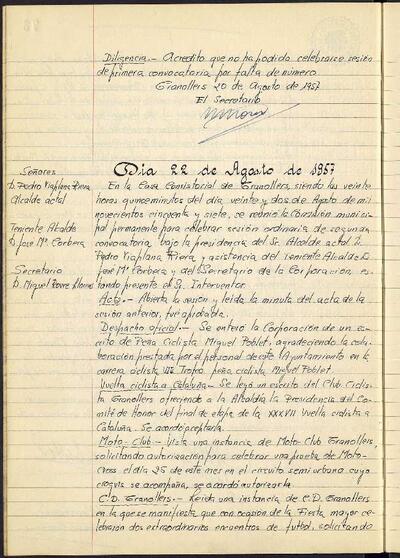 Diligencia.- Acredito que no ha podido celebrarse sesión
de primera convocatoria por falta de número
Granollers 20 de Agosto de 1957
El Secretario
Día 22 de Agosto de 1957
Señores
D. Pedro Viaplana Riera
Alcalde actal.
Teniente Alcalde
D. José Mª Corbera
Secretario
D. Miguel
En la Casa Consistorial de Granollers, siendo las veinte
horas quince minutos del día veinte y dos de Agosto de mil
novecientos cincuenta y siete, se reunió la Comisión munici-
pal permanente para celebrar sesión ordinaria de segunda
convocatoria, bajo la presidencia del Sr. Alcalde actal. D.
Pedro Viaplana Riera y asistencia del Teniente Alcalde D.
José Mª Corbera y del Secretario de la Corporación, es-
tando presente el Sr. Interventor.
Acta.- Abierta la sesión y leída la minuta del acta de la
sesión anterior, fué aprobada.
Despacho oficial.- Se enteró la Corporación de un es-
crito de Peña Ciclista Miguel Poblet, agradeciendo la cola-
boración prestada por el personal de este Ayuntamiento en la
carrera ciclista Trofeo peña ciclista Miguel Poblet.
Vuelta ciclista a Cataluña.- Se leyó un escrito del Club Ciclis-
ta Granollers ofreciendo a la Alcaldía la Presidencia del Co-
mité de Honor del final de etapa de la XXXVII Vuelta ciclista a
Cataluña. Se acordó aceptarla.
Moto-Club.- Vista una instancia de Moto-Club Granollers,
solicitando autorización para celebrar una prueba de Moto-
Cros el día 25 de este mes en el circuito semiurbano cuyo
croquis se acompaña, se acordó autorizarla.
C.D. Granollers.- Leída una instancia de C.D. Granollers
en la que se manifiesta que con ocasión de la Fiesta mayor ce-
lebrarán dos extraordinarios encuentros de futbol, solicitando